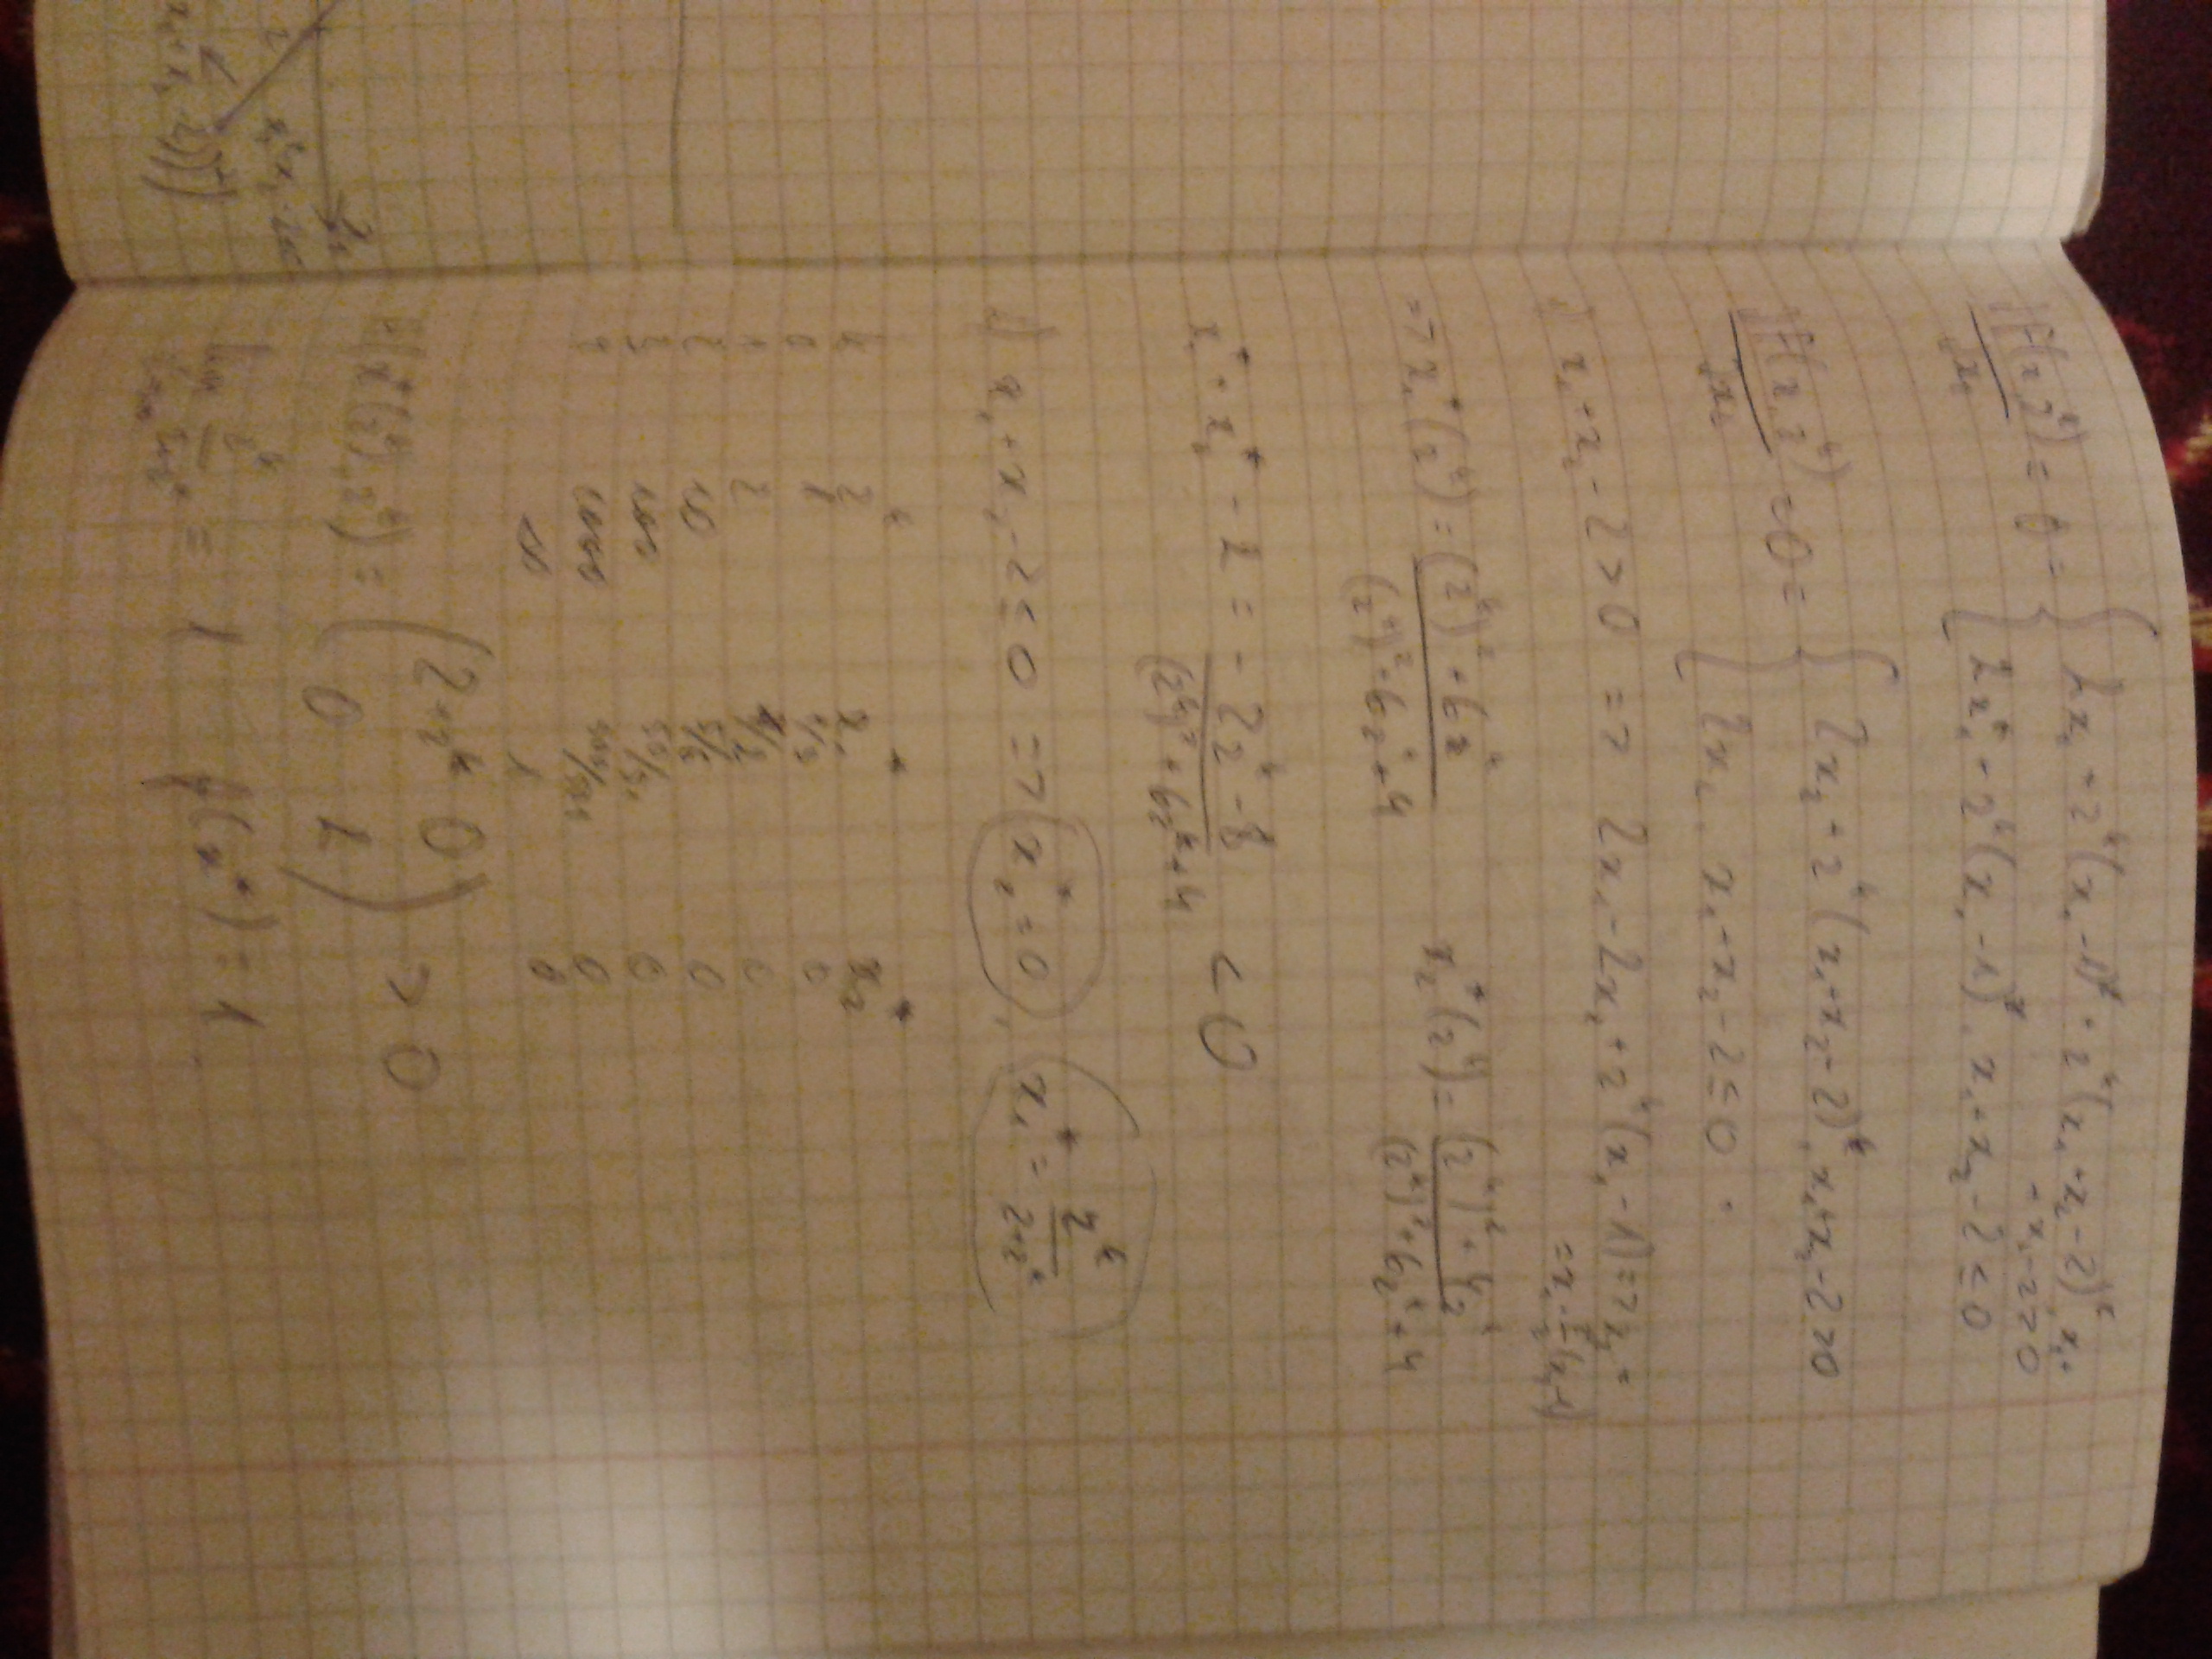 ∂F(x, z^k)/∂x₁ = 0 = { 2x₁ + z^k(x₁ - 1) + z^k(x₁ + x₂ - 2), x₁ + x₂ - 2 > 0
{ 2x₁ + z^k(x₁ - 1), x₁ + x₂ - 2 ≤ 0
∂F(x, z^k)/∂x₂ = 0 = { 2x₂ + z^k(x₁ + x₂ - 2), x₁ + x₂ - 2 > 0
{ 2x₂, x₁ + x₂ - 2 ≤ 0
1) x₁ + x₂ - 2 > 0 => 2x₁ - 2x₂ + z^k(x₁ - 1) => x₂ =
= x₁ + z/2 (x₁ - 1)
=> x₁*(z^k) = ((z^k)² + 6z^k) / ((z^k)² + 6z^k + 4) x₂*(z^k) = ((z^k)² + 4z^k) / ((z^k)² + 6z^k + 4)
x₁* + x₂* - 2 = (- 2z^k - 8) / ((z^k)² + 6z^k + 4) < 0
2) x₁ + x₂ - 2 ≤ 0 => x₂* = 0, x₁* = z^k / (2 + z^k)
k z^k x₁* x₂*
0 1 1/3 0
1 2 1/2 0
2 10 5/6 0
3 100 50/51 0
4 1000 500/501 0
∞ 1 0
H(x*(z^k), z^k) = (2 + z^k 0
0 2) > 0
lim z^k / (2 + z^k) = 1 f(x*) = 1